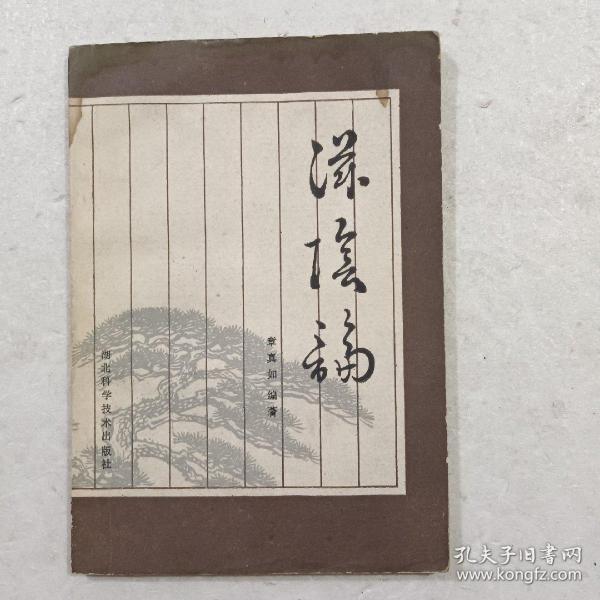 滋陰論
章真如 編著
湖北科学技术出版社
孔夫子旧書网
www.kongfz.com